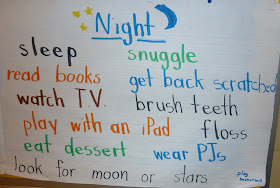 Night
sleep snuggle
read books get back scratched
watch T.V. brush teeth
play with an iPad floss
eat dessert wear PJs
look for moon or stars play
basketball